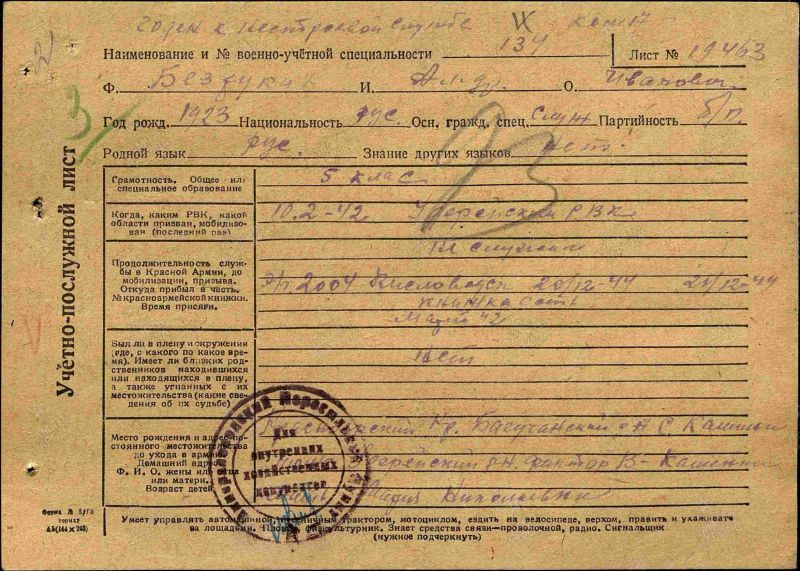 годен к нестроевой службе IX
Наименование и № военно-учётной специальности 134 Лист № 19463
Ф. И. О. Иванович
Год рожд. 1923 Национальность рус. Осн. гражд. спец. служ Партийность б/п.
Родной язык рус. Знание других языков нет.
93
3
Учётно-послужной лист
Грамотность. Общее или
специальное образование
5 клас
Когда, каким РВК, какой
области призван, мобилизован
(последний раз)
10.2-42. Удерейским РВК
Не служил
Продолжительность службы
в Красной Армии, до
мобилизации, призыва.
Откуда прибыл в часть.
№ красноармейской книжки.
Время присяги.
2004 Кисловодск 20/12-44 21/12-44
книжка есть
Март 42
Был ли в плену и окружении
(где, с какого по какое время).
Имеет ли близких родственников
находившихся
или находящихся в плену,
а также угнанных с их
местожительства (какие сведения
об их судьбе)
Нет
Место рождения и адрес постоянного
местожительства
до ухода в армию
Домашний адрес
Ф. И. О. жены или отца
или матери.
Возраст детей
Красноярский кр. Богучанский рн С.
Удерейский рн.
Мария Николаевна
Пересыльный Пункт
Для
внутренних
хозяйственных
документов
Форма № 5/ГУ
формат
А5(144×203)
Умеет управлять автомашиной, гусеничным трактором, мотоциклом, ездить на велосипеде, верхом, править и ухаживать
за лошадьми. Пловец, физкультурник. Знает средства связи—проволочной, радио. Сигнальщик
(нужное подчеркнуть)